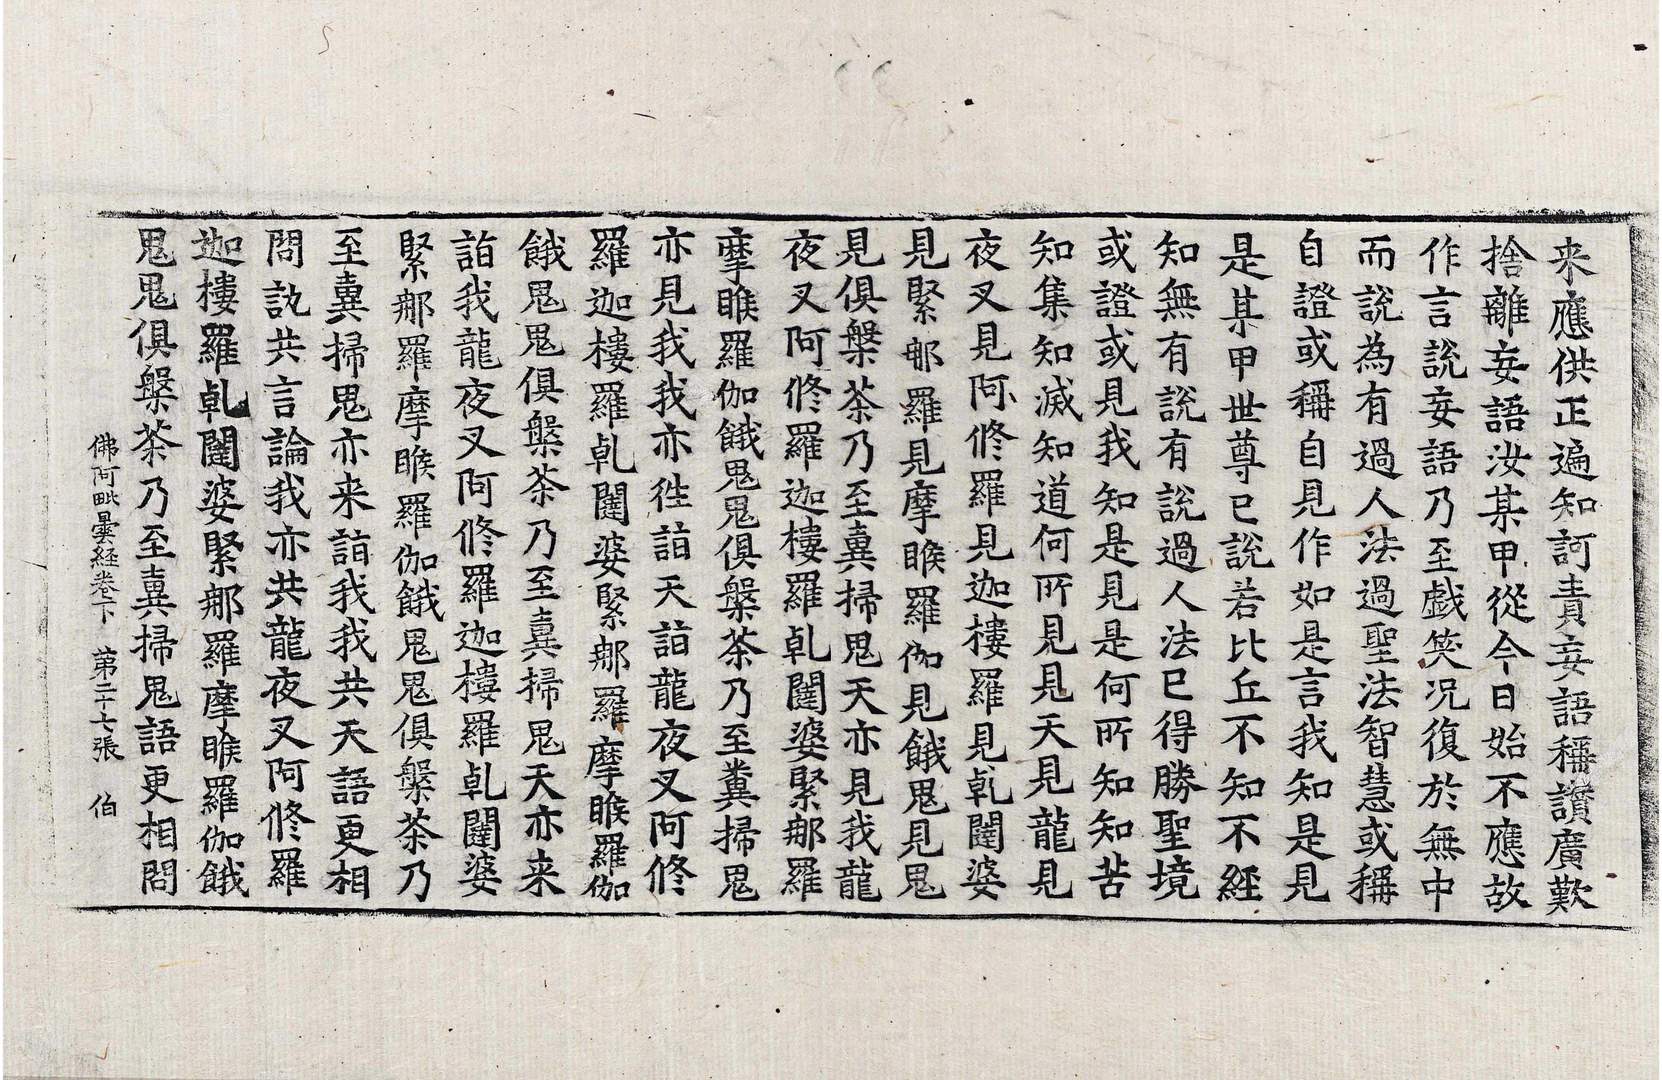 来應供正遍知訶責妄語稱讃廣歎
捨離妄語汝某甲從今日始不應故
作言説妄語乃至戯笑况復於無中
而説為有過人法過聖法智慧或稱
自證或稱自見作如是言我知是見
是某甲世尊已説若比丘不知不經
知無有説有説過人法已得勝聖境
或證或見我知是見是何所知知苦
知集知滅知道何所見見天見龍見
夜叉見阿修羅見迦樓羅見乹闥婆
見緊那羅見摩睺羅伽見餓鬼見鬼
見俱槃茶乃至糞掃鬼天亦見我龍
夜叉阿修羅迦樓羅乹闥婆緊那羅
摩睺羅伽餓鬼鬼俱槃茶乃至糞掃鬼
亦見我我亦徃詣天詣龍夜叉阿修
羅迦樓羅乹闥婆緊那羅摩睺羅伽
餓鬼鬼俱槃茶乃至糞掃鬼天亦来
詣我龍夜叉阿修羅迦樓羅乹闥婆
緊那羅摩睺羅伽餓鬼鬼俱槃茶乃
至糞掃鬼亦来詣我我共天語更相
問訊共言論我亦共龍夜叉阿修羅
迦樓羅乹闥婆緊那羅摩睺羅伽餓
鬼鬼俱槃茶乃至糞掃鬼語更相問
佛阿毗曇経卷下　第二十七張　伯